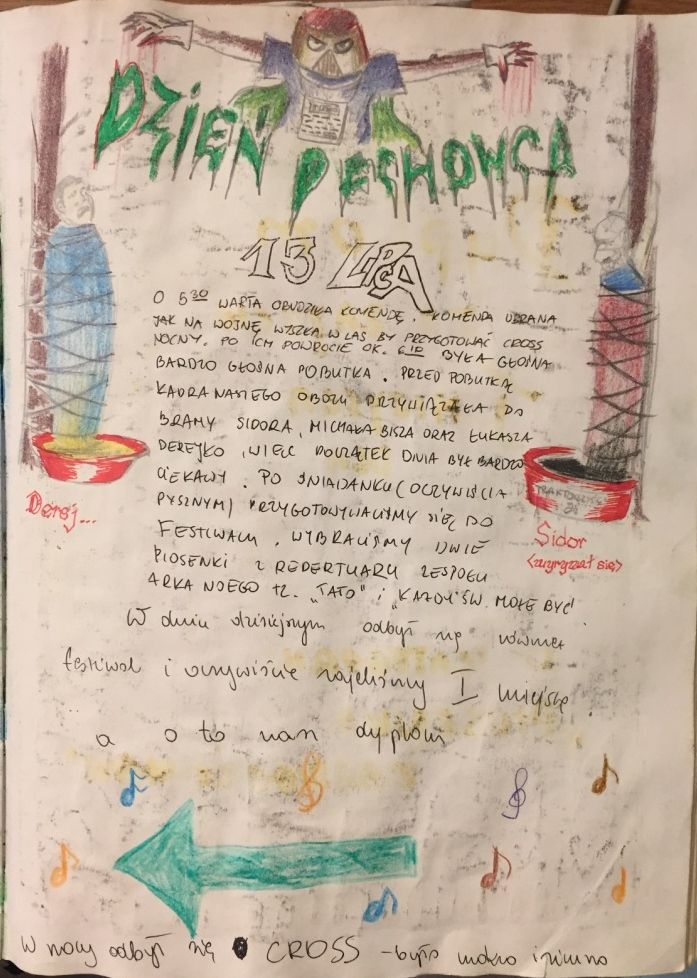 DZIEŃ PECHOWCA
13 LIPCA
O 5 30 WARTA OBUDZIŁA KOMENDĘ. KOMENDA UBRANA
JAK NA WOJNĘ WYSZŁA W LAS BY PRZYGOTOWAĆ CROSS
NOCNY. PO ICH POWROCIE OK. 6 10 BYŁA GŁOŚNA
BARDZO GŁOŚNA POBUTKA. PRZED POBUTKĄ
KADRA NASZEGO OBOZU PRZYWIĄZAŁA DO
BRAMY SIDORA, MICHAŁA BISZA ORAZ ŁUKASZA
DEREJKO, WIĘC POCZĄTEK DNIA BYŁ BARDZO
CIEKAWY. PO ŚNIADANKU (OCZYWIŚCIA
PYSZNYM) PRZYGOTOWYWALIŚMY SIĘ DO
FESTIWALU, WYBRALIŚMY DWIE
PIOSENKI Z REPERTUARU ZESPOŁU
ARKA NOEGO TZ. „TATO" i „KAŻDY ŚW. MOŻE BYĆ"
Derej...
Sidor
<wyrywał się>
W dniu dzisiejszym odbył się również
festiwal i oczywiście zajeliśmy I miejsce
a o to nasz dyplom
W nocy odbył się CROSS - było mokro i zimno